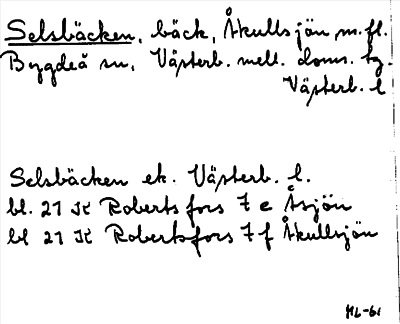 Selsbäcken, bäck, Åkullsjön m. fl.
Bygdeå sn, Västerb. mell. doms. tg.
Västerb. l
Selsbäcken ek. Västerb. l.
bl. 21 K Robertsfors 7 e Åsjön
bl 21 K Robertsfors 7 f Åkullsjön
ML-61